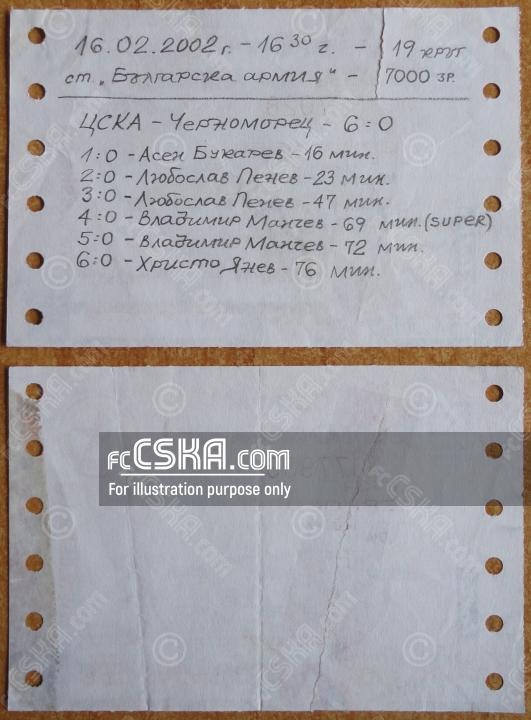 16.02.2002 г. - 16 30 ч. - 19 кръг
ст. „Българска армия" - 7000 зр.
ЦСКА - Черноморец - 6:0
1:0 - Асен Букарев - 16 мин.
2:0 - Любослав Пенев - 23 мин.
3:0 - Любослав Пенев - 47 мин.
4:0 - Владимир Манчев - 69 мин. (SUPER)
5:0 - Владимир Манчев - 72 мин.
6:0 - Христо Янев - 76 мин.
fcCSKA.com
For illustration purpose only